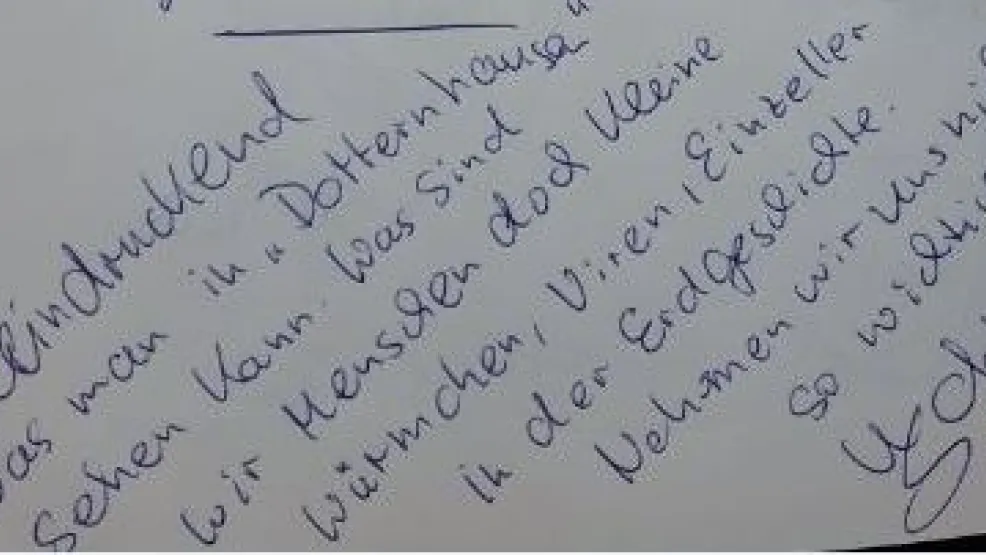 eindruckend
was man in "Dotternhausen"
sehen kann. Was sind
wir Menschen doch kleine
würmchen, Viren, Einzeller
in der Erdgeschichte.
Nehmen wir uns
so